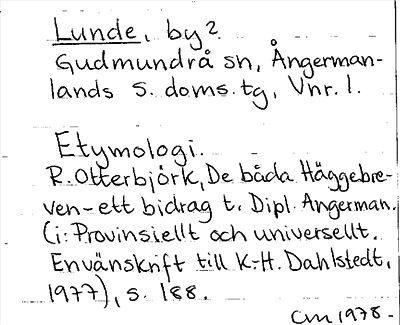 Lunde, by?
Gudmundrå sn, Ångerman-
lands s. doms. tg, Vnr. 1.
Etymologi.
R. Otterbjörk, De båda Häggebre-
ven - ett bidrag t. Dipl. Angerman.
(i: Provinsiellt och universellt.
Envänskrift till K.-H. Dahlstedt,
1977), s. 188.
CM 1978.